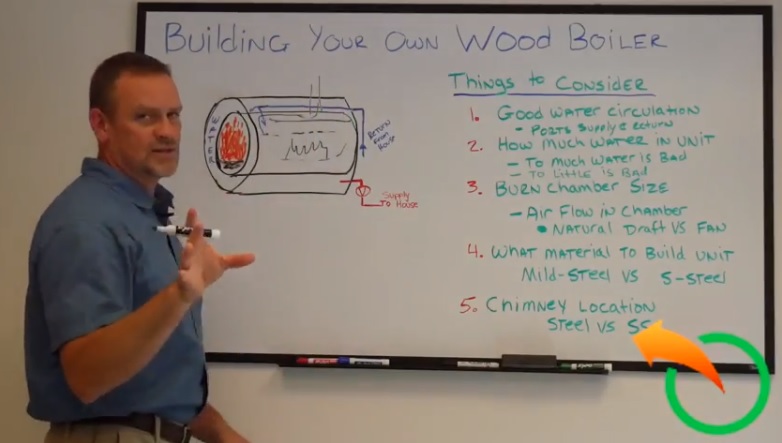 Building Your Own Wood Boiler
Things to Consider
1. Good Water Circulation
- Ports Supply & Return
2. How Much Water in Unit
- To Much Water is Bad
- To Little is Bad
3. Burn Chamber Size
- Air Flow in Chamber
• Natural Draft VS Fan
4. What Material to Build Unit
Mild-Steel VS S-Steel
5. Chimney Location
Steel VS SS
Water
Return
From
House
Supply
To House